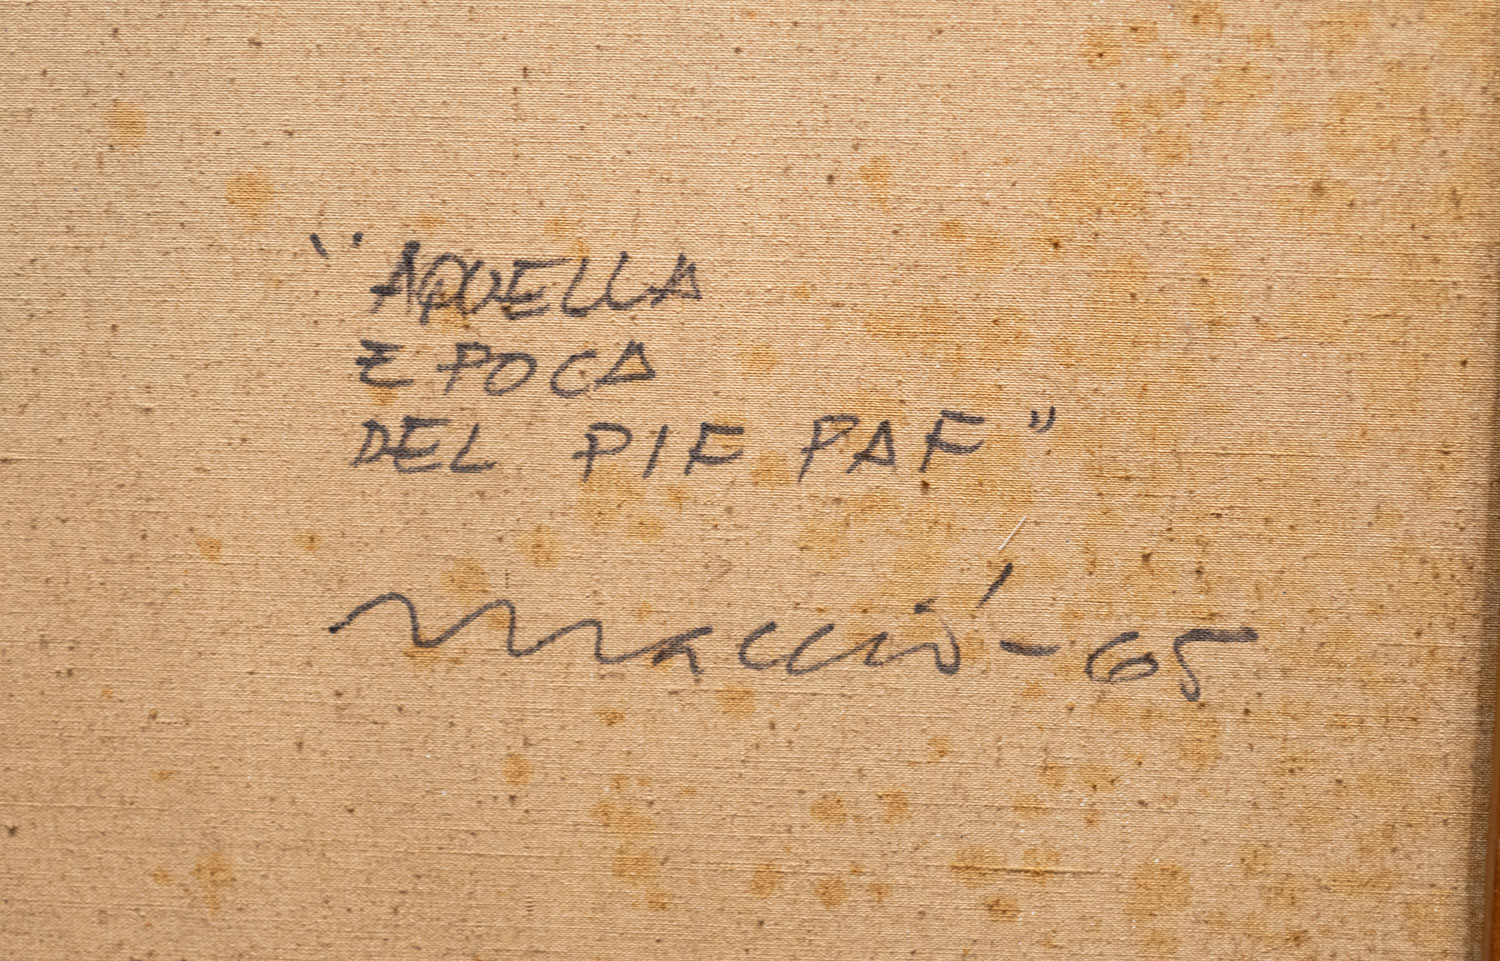 "AQUELLA
EPOCA
DEL PIF PAF"
Macció - 65